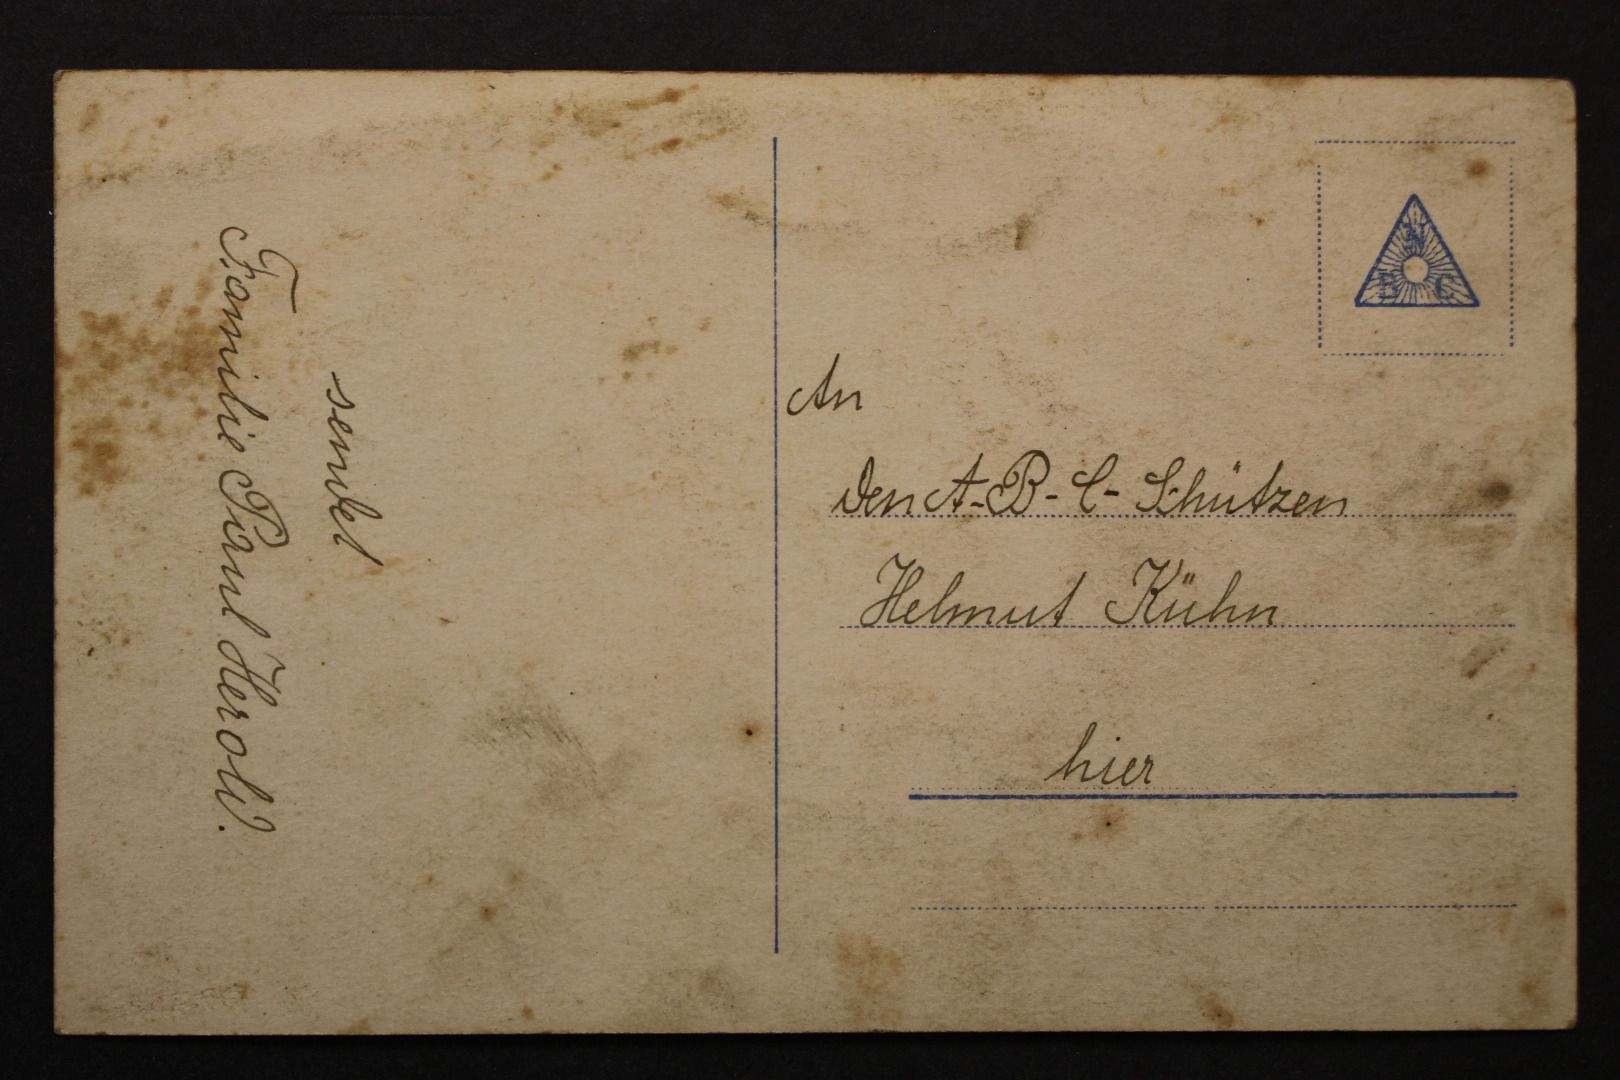 sendet
Familie Paul Herold.
N
B C
An
den A-B-C-Schützen
Helmut Kühn
hier